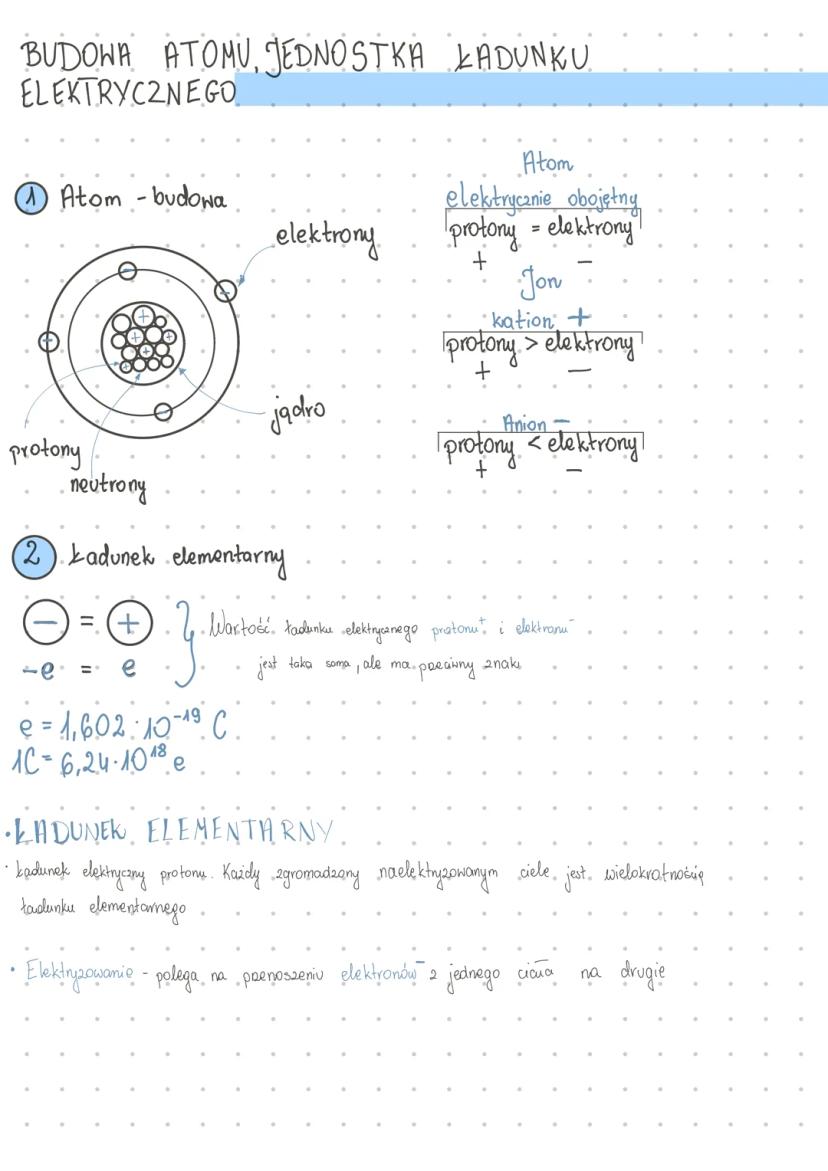 BUDOWA ATOMU, JEDNOSTKA ŁADUNKU
ELEKTRYCZNEGO
1 Atom - budowa
elektrony
jądro
protony
neutrony
Atom
elektrycznie obojętny
protony = elektrony
+ −
Jon
kation +
protony > elektrony
+ −
Anion −
protony < elektrony
+ −
2 Ładunek elementarny
− = +
-e = e
Wartość ładunku elektrycznego protonu⁺ i elektronu⁻
jest taka sama, ale ma przeciwny znak
e = 1,602 · 10⁻¹⁹ C
1C = 6,24 · 10¹⁸ e
• ŁADUNEK ELEMENTARNY
• Ładunek elektryczny protonu. Każdy zgromadzony naelektryzowanym ciele jest wielokrotnością
ładunku elementarnego
• Elektryzowanie - polega na przenoszeniu elektronów⁻ z jednego ciała na drugie